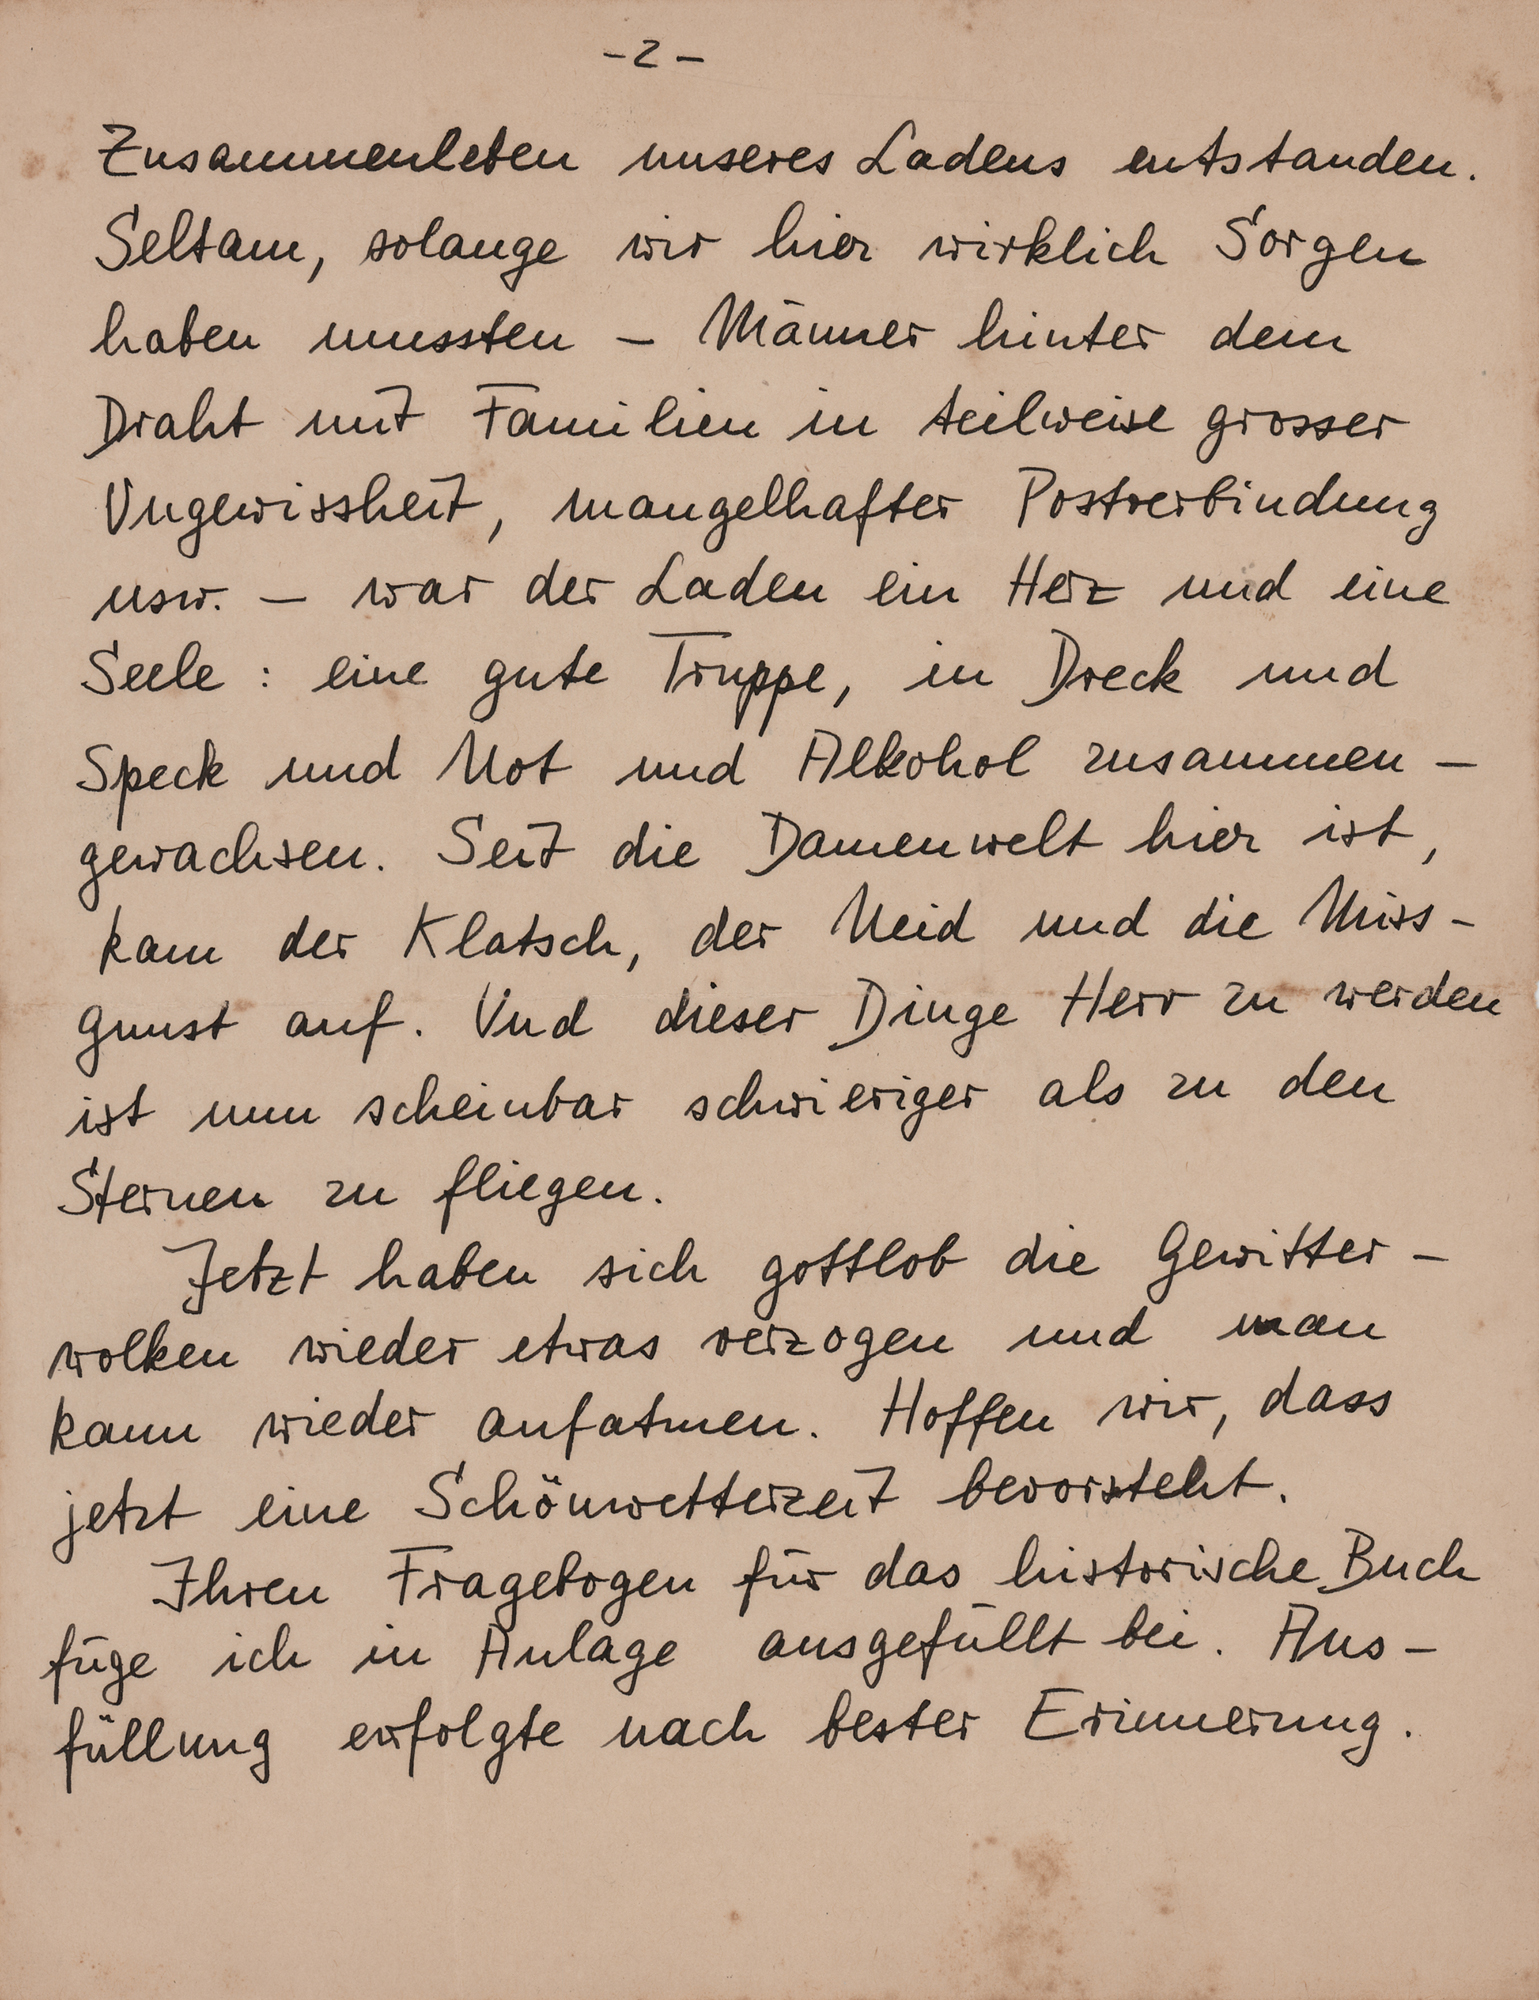 - 2 -
Zusammenleben unseres Ladens entstanden.
Seltsam, solange wir hier wirklich Sorgen
haben mussten – Männer hinter dem
Draht mit Familien in teilweise grosser
Ungewissheit, mangelhafter Postverbindung
usw. – war der Laden ein Herz und eine
Seele : eine gute Truppe, in Dreck und
Speck und Not und Alkohol zusammen -
gewachsen. Seit die Damenwelt hier ist,
kam der Klatsch, der Neid und die Miss -
gunst auf. Und dieser Dinge Herr zu werden
ist nun scheinbar schwieriger als zu den
Sternen zu fliegen.
Jetzt haben sich gottlob die Gewitter -
wolken wieder etwas verzogen und man
kann wieder aufatmen. Hoffen wir, dass
jetzt eine Schönwetterzeit bevorsteht.
Ihren Fragebogen für das historische Buch
füge ich in Anlage ausgefüllt bei. Aus -
füllung erfolgte nach bester Erinnerung.